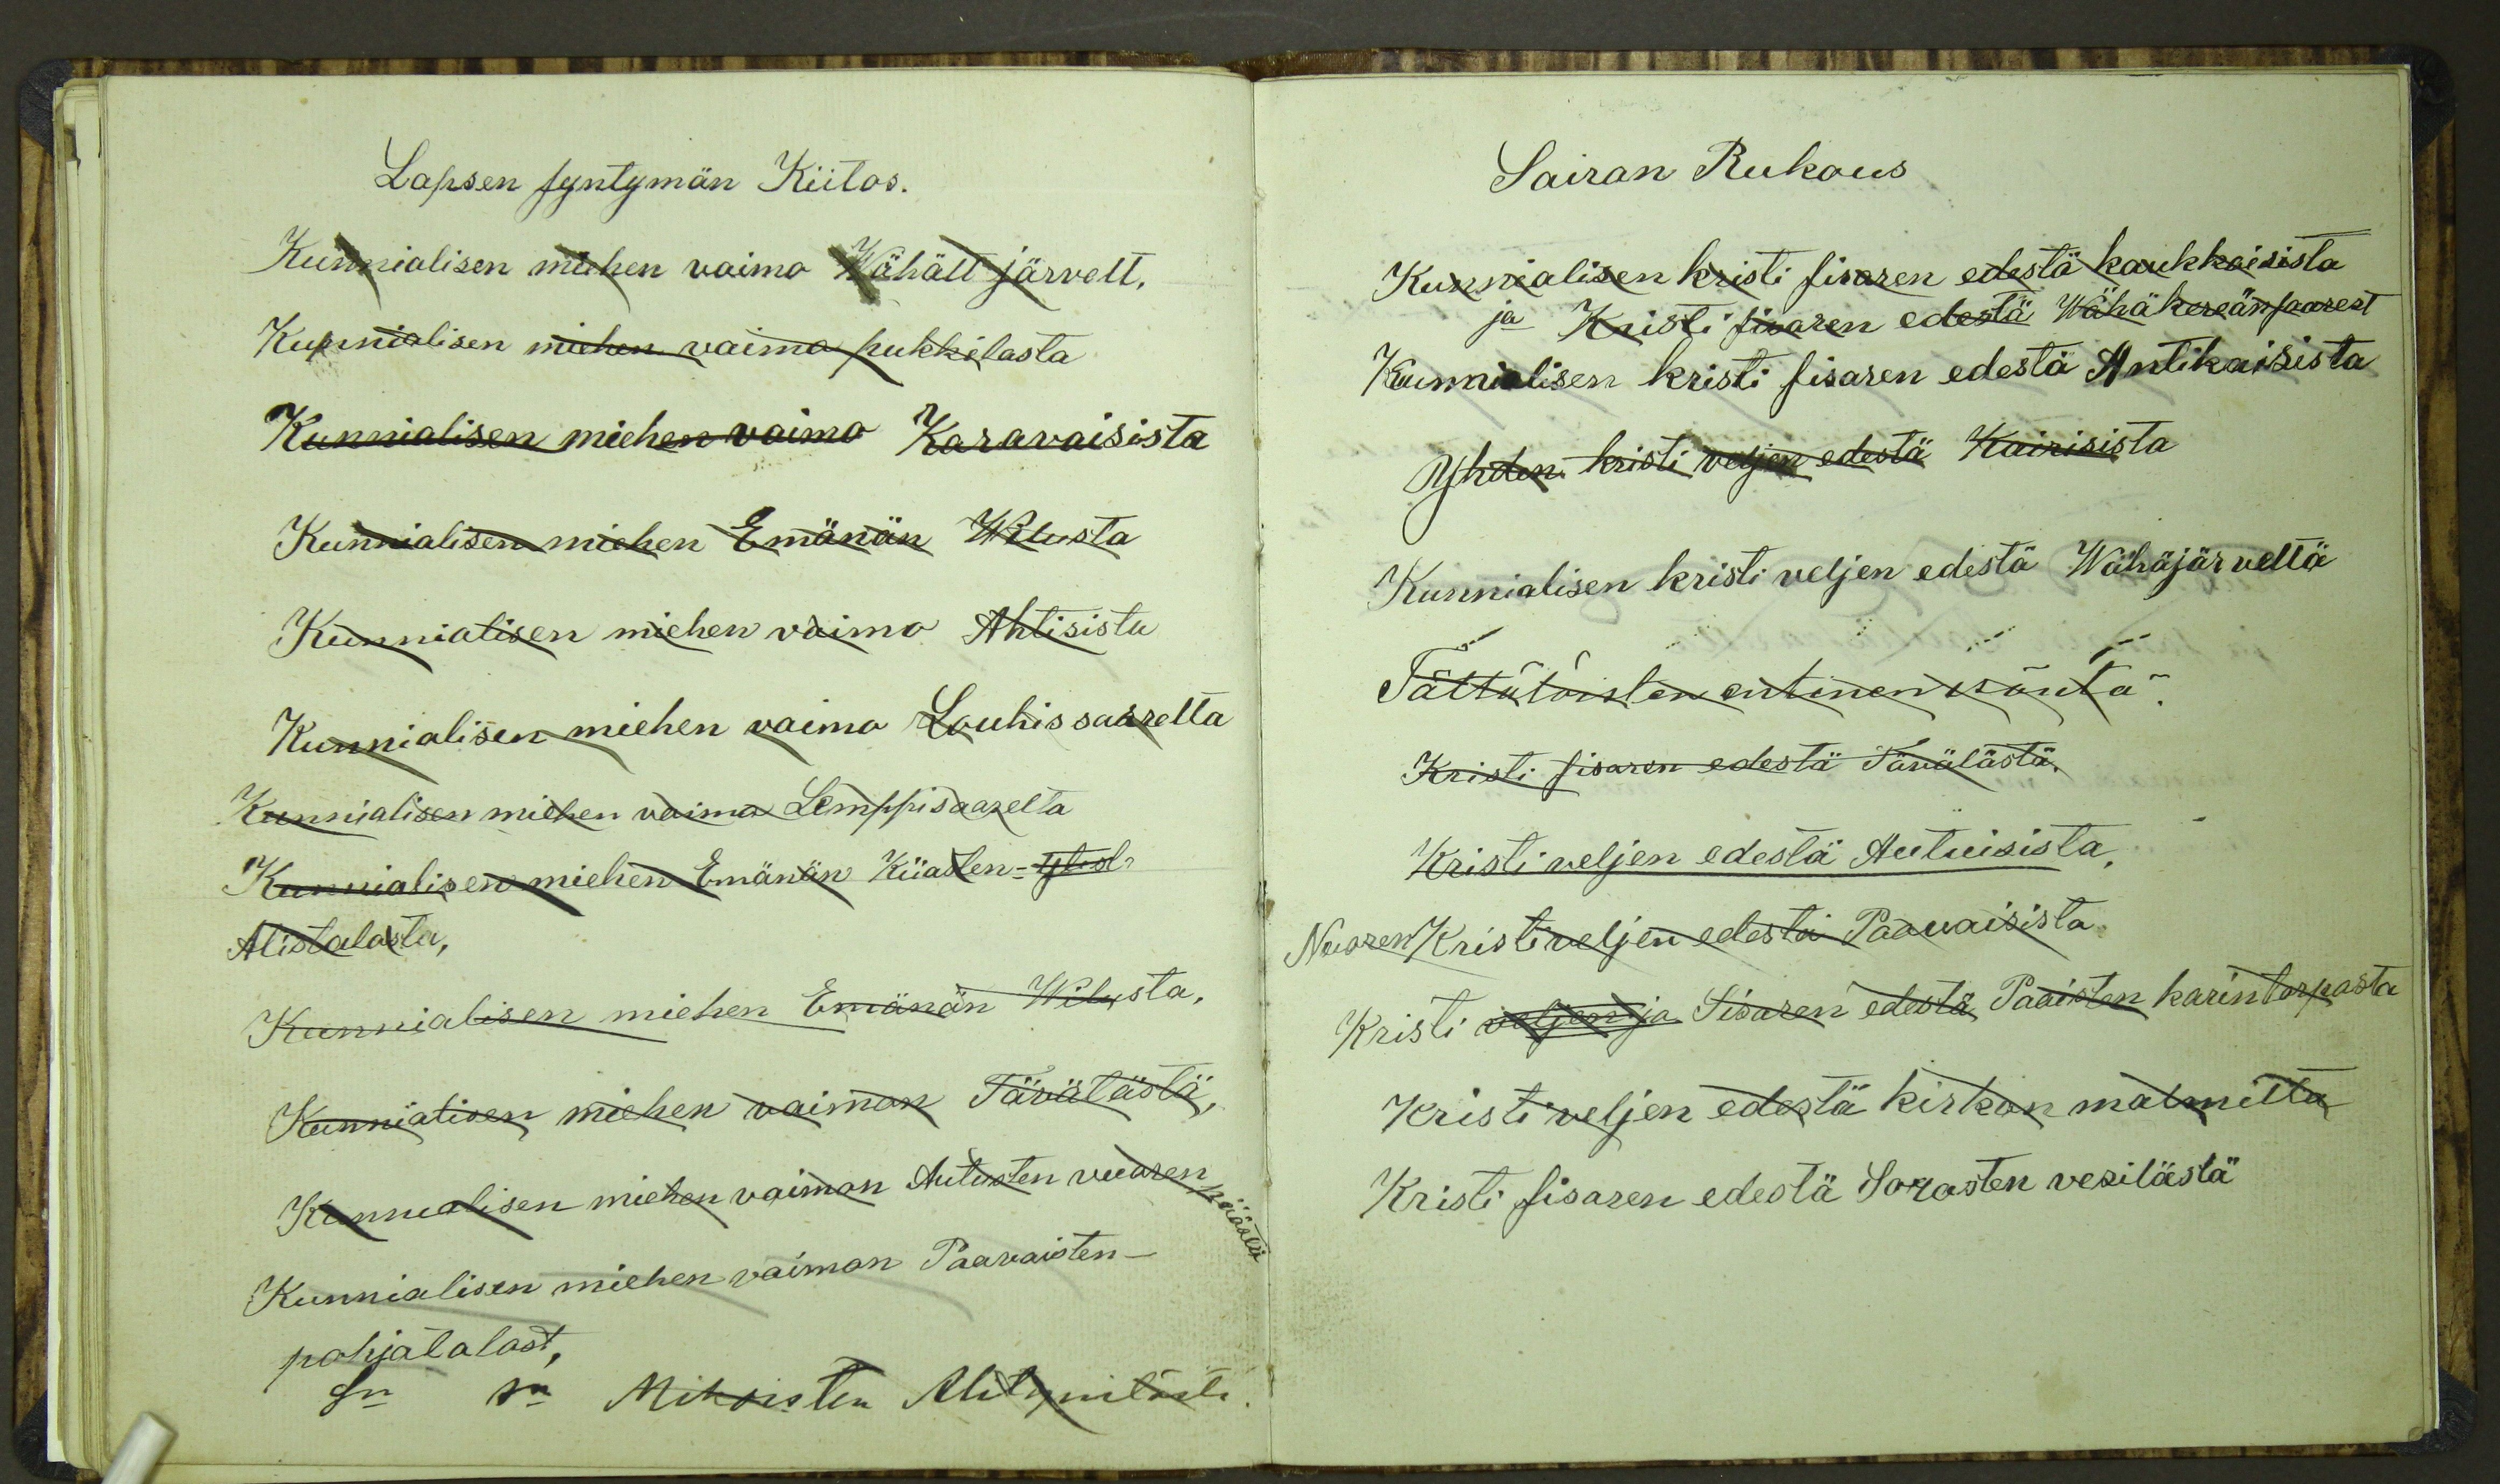 Lapsen syntymän Kiitos.
Kunnialisen miehen vaimo Wähält järvelt,
Kunnialisen miehen vaimo pukkilasta
Kunnialisen miehen vaimo Karavaisista
Kunnialisen miehen Emänän Wilusta
Kunnialisen miehen vaimo Ahtisista
Kunnialisen miehen vaimo Louhissaarelta
Kunnialisen miehen vaimo Lemppisaarelta
Kunnialisen miehen Emänän Kiiasten=
Alistalasta,
Kunnialisen miehen Emänän Wilusta,
Kunnialisen miehen vaimon Tävälästä,
Kunnialisen miehen vaimon Autusten vuoren päästä
Kunnialisen miehen vaimon Paavaisten-
pohjatalost,
Sn sn
Sairan Rukous
Kunnialisen kristi sisaren edestä kaukkaisista
ja Kristi sisaren edestä Wähäkereänsaarest
Kunnialisen kristi sisaren edestä Antikaisista
Yhden kristi veljen edestä Kairisista
Kunnialisen kristi veljen edestä Wähäjärveltä
Tättälöisten entinen isäntä.
Kristi sisaren edestä Tävälästä,
Kristi veljen edestä Autuisista,
Nuoren Kristi veljen edestä Paavaisista
Kristi veljen ja Sisaren edestä Paaisten karintorpasta
Kristi veljen edestä kirkon malmilta
Kristi sisaren edestä Sorasten vesilästä